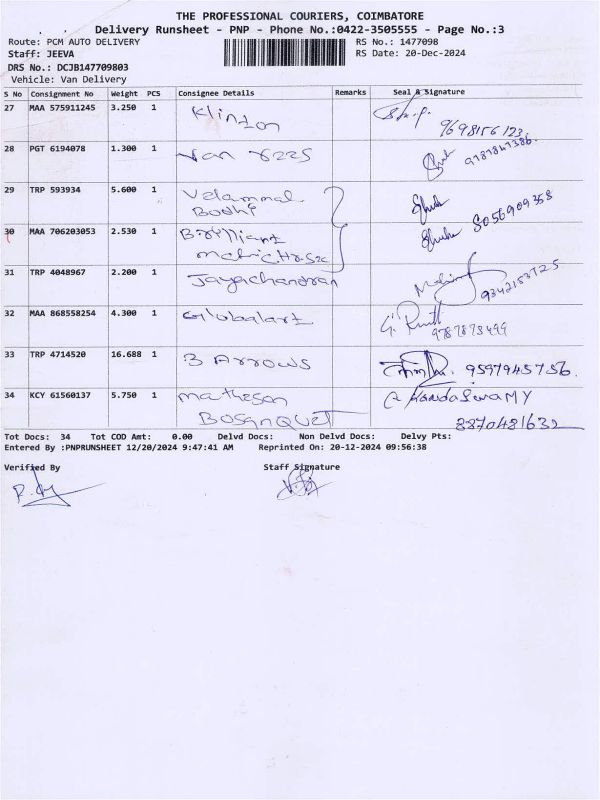 THE PROFESSIONAL COURIERS, COIMBATORE
Delivery Runsheet - PNP - Phone No.:0422-3505555 - Page No.:3
Route: PCM AUTO DELIVERY RS No.: 1477098
Staff: JEEVA RS Date: 20-Dec-2024
DRS No.: DCJB147709803
Vehicle: Van Delivery
S No Consignment No Weight PCS Consignee Details Remarks Seal & Signature
27 MAA 575911245 3.250 1 Klinton
9698156123
28 PGT 6194078 1.300 1 Van 6225
9787847386
29 TRP 593934 5.600 1 Velammal
Bodhi
8056909358
30 MAA 706203053 2.530 1 Brilliant
matric Hr.Sec
31 TRP 4048967 2.200 1 Jayachandran
9342153725
32 MAA 868558254 4.300 1 Globalart
9787873499
33 TRP 4714520 16.688 1 3 Arrows 9597945756.
34 KCY 61560137 5.750 1 matheson KandaSwaMY
BOSanQUET 8870481632
Tot Docs: 34 Tot COD Amt: 0.00 Delvd Docs: Non Delvd Docs: Delvy Pts:
Entered By :PNPRUNSHEET 12/20/2024 9:47:41 AM Reprinted On: 20-12-2024 09:56:38
Verified By Staff Signature